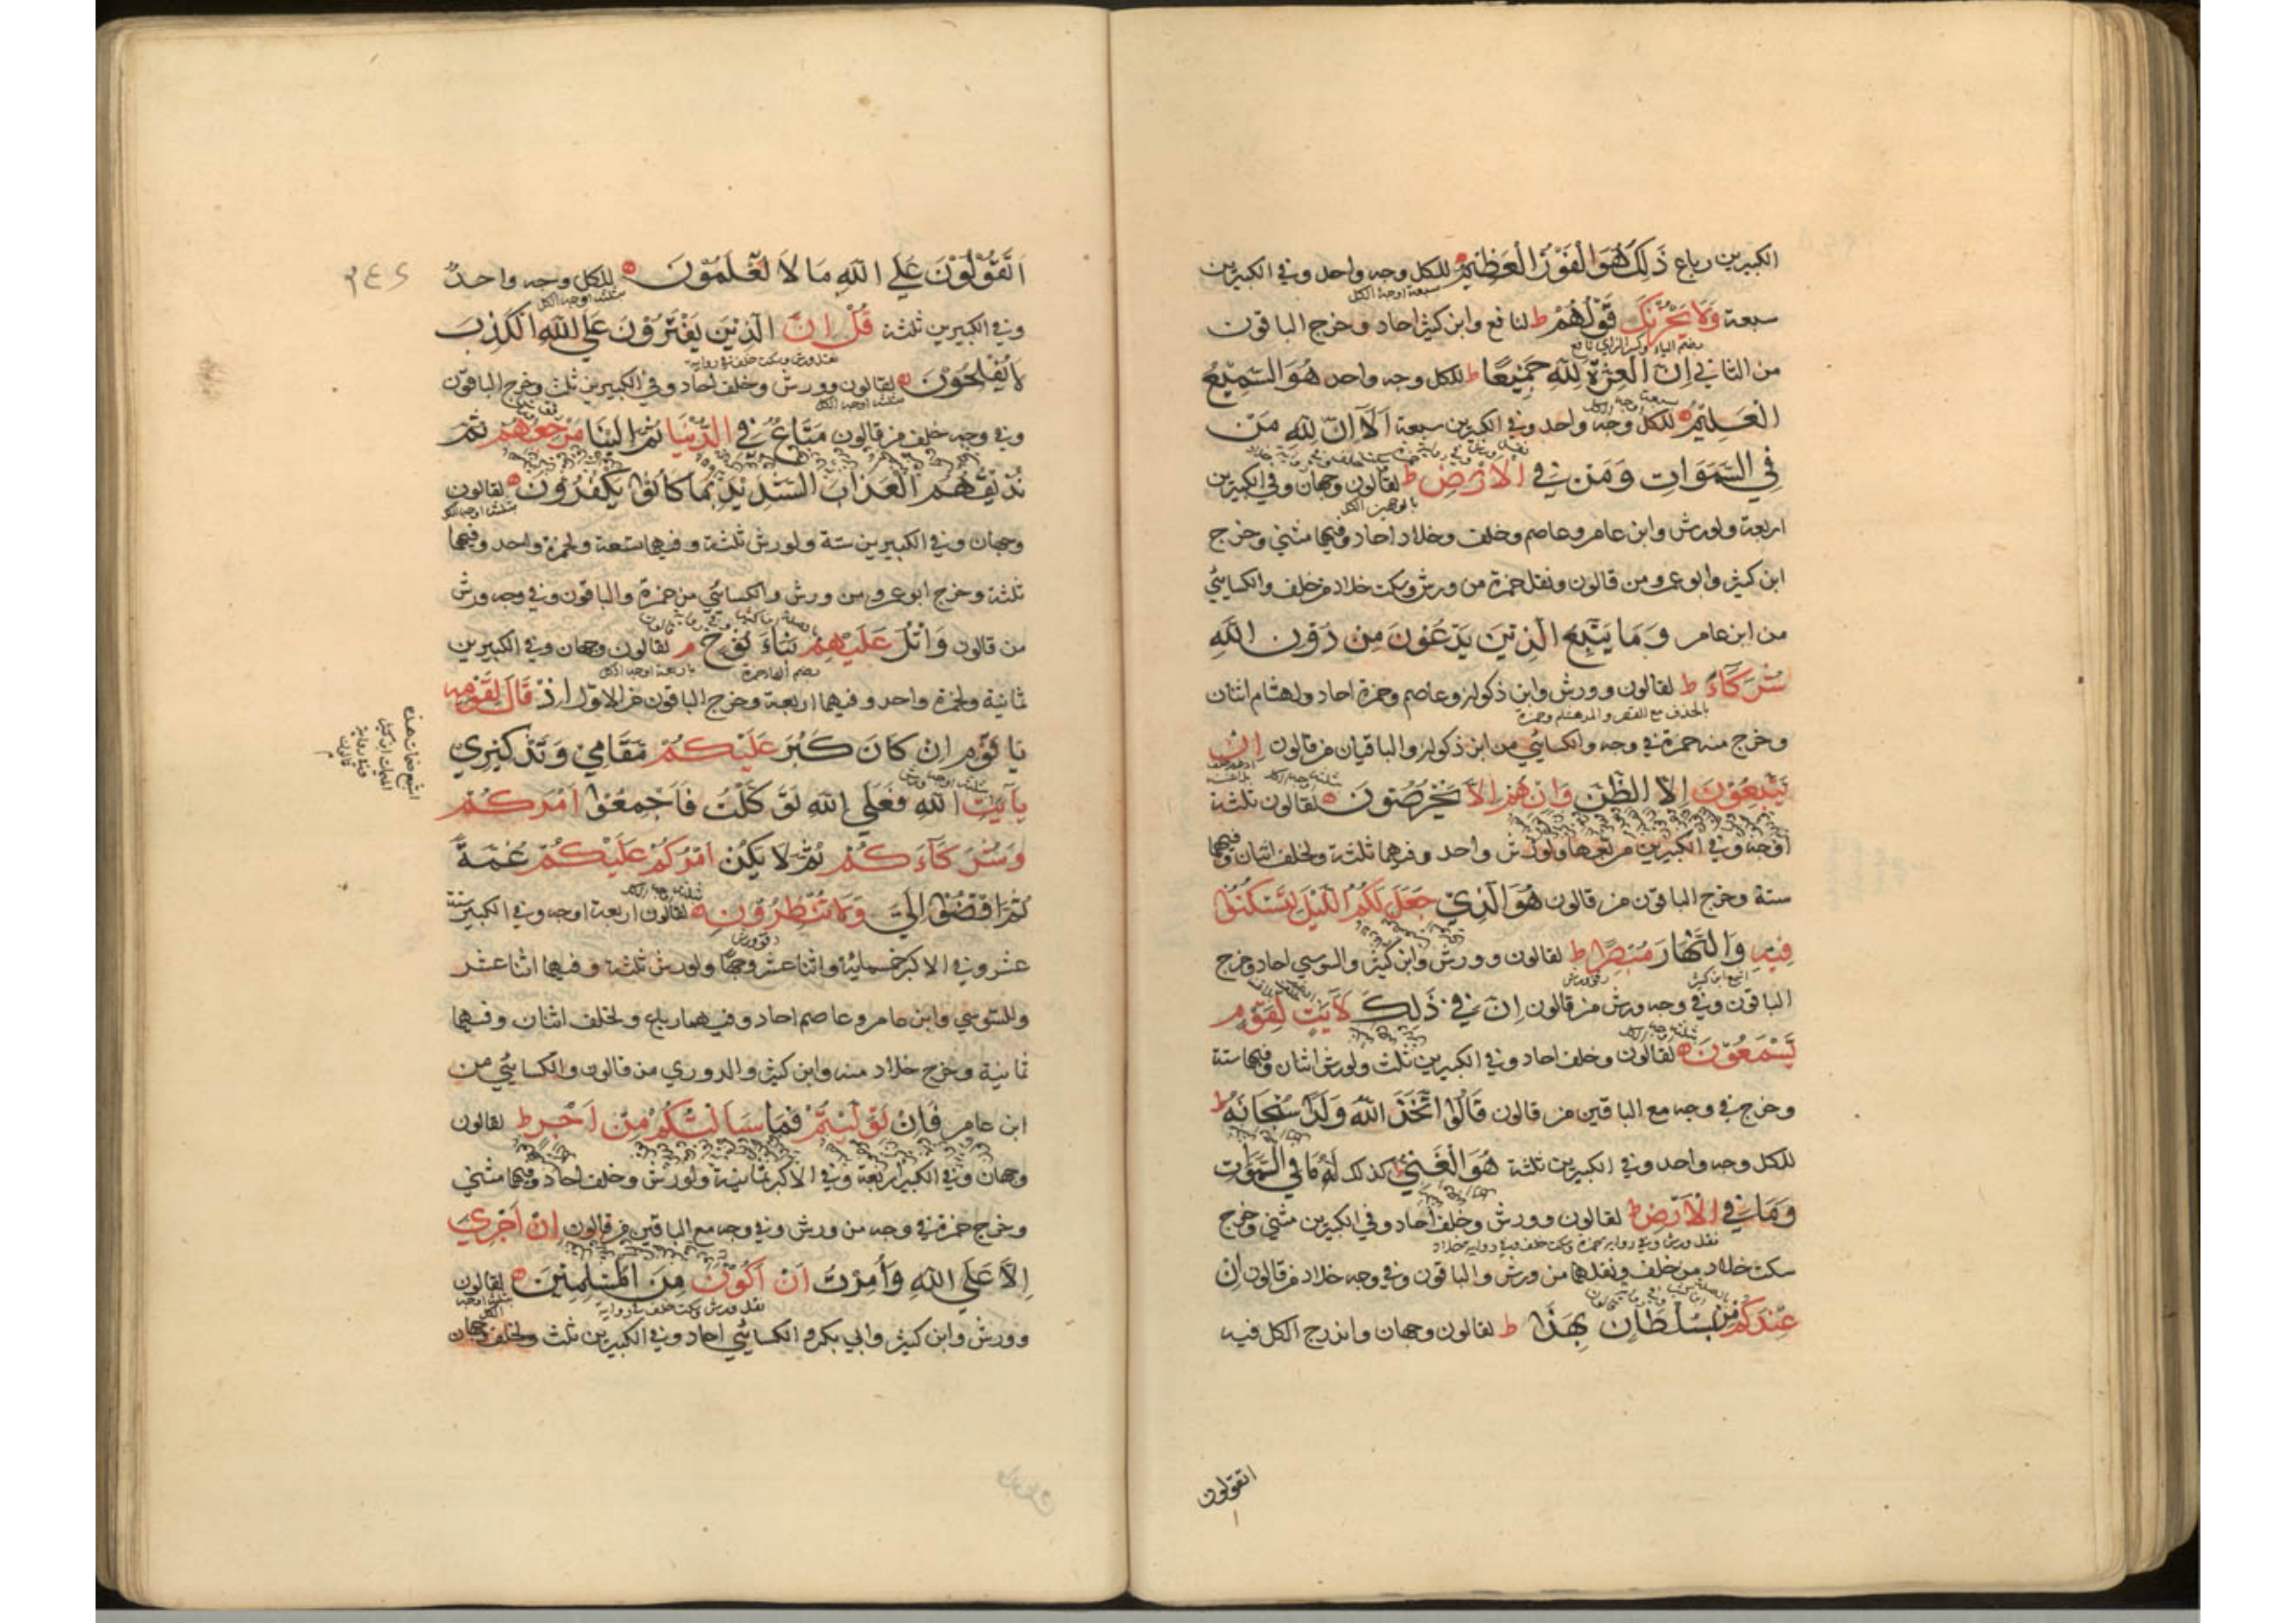 الكبيرين رباع ذَلِكَ هُوَ الْفَوْزُ الْعَظِيمُ للكل وجه واحد وفي الكبيرين
سبعة اوجه الكل
سبعة وَلَا يَحْزُنْكَ قَوْلُهُمْ ط لنافع وابن كثير احاد وخرج الباقون
بضم الياء وكسر الزاي نافع
من الثاني إِنَّ الْعِزَّةَ لِلَّهِ جَمِيعًا ط للكل وجه واحد هُوَ السَّمِيعُ
الْعَلِيمُ للكل وجه واحد وفي الكبيرين سبعة أَلَا إِنَّ لِلَّهِ مَنْ
فِي السَّمَوَاتِ وَمَنْ فِي الْأَرْضِ ط لقالون وجهان وفي الكبيرين
بالوجهين الكل
اربعة ولورش وابن عامر وعاصم وخلف وخلاد احاد وفيهما مثني وخرج
ابن كثير وابو عمرو من قالون ونقل حمزة من ورش وسكت خلاد من خلف والكسائي
من ابن عامر وَمَا يَتَّبِعُ الَّذِينَ يَدْعُونَ مِنْ دُونِ اللَّهِ
شُرَكَاءَ ط لقالون وورش وابن ذكوان وعاصم وحمزة احاد ولهشام اثنان
بالحذف مع القصر والمد هشام وحمزة
وخرج منه حمزة في وجه والكسائي من ابن ذكوان والباقيان من قالون إِنْ
يَتَّبِعُونَ إِلَّا الظَّنَّ وَإِنْ هُمْ إِلَّا يَخْرُصُونَ لقالون ثلثة
اوجه وفي الكبيرين ولورش واحد وفيهما ثلثة ولخلف اثنان وفيهما
ستة وخرج الباقون من قالون هُوَ الَّذِي جَعَلَ لَكُمُ اللَّيْلَ لِتَسْكُنُوا
فِيهِ وَالنَّهَارَ مُبْصِرًا ط لقالون وورش وابن كثير والسوسي احاد وخرج
اشبع ابن كثير رقق ورش
الباقون وفي وجه ورش من قالون إِنَّ فِي ذَلِكَ لَآيَتٍ لِقَوْمٍ
يَسْمَعُونَ لقالون وخلف احاد وفي الكبيرين ثلث ولورش اثنان وفيهما ستة
وخرج في وجه مع الباقين من قالون قَالُوا اتَّخَذَ اللَّهُ وَلَدًا سُبْحَانَهُ ط
للكل وجه واحد وفي الكبيرين ثلثة هُوَ الْغَنِيُّ كذلك لَهُ مَا فِي السَّمَوَاتِ
وَمَا فِي الْأَرْضِ ط لقالون وورش وخلف احاد وفي الكبيرين مثني وخرج
نقل ورش وفي رواية حمزة وسكت خلف وفي رواية خلاد
سكت خلاد من خلف ونقلهما من ورش والباقون وفي وجه خلاد من قالون إِنْ
عِنْدَكُمْ مِنْ سُلْطَانٍ بِهَذَا ط لقالون وجهان واندرج الكل فيه
اتقولون
٢٤٢
اَتَقُولُونَ عَلَى اللَّهِ مَا لَا تَعْلَمُونَ للكل وجه واحد
ثلثة اوجه الكل
وفي الكبيرين ثلثة قُلْ إِنَّ الَّذِينَ يَفْتَرُونَ عَلَى اللَّهِ الْكَذِبَ
نقل ورش وسكت خلف في رواية
لَا يُفْلِحُونَ لقالون وورش وخلف احاد وفي الكبيرين ثلث وخرج الباقون
ثلثة اوجه الكل
وفي وجه خلف من قالون مَتَاعٌ فِي الدُّنْيَا ثُمَّ إِلَيْنَا مَرْجِعُهُمْ ثُمَّ
نُذِيقُهُمُ الْعَذَابَ الشَّدِيدَ بِمَا كَانُوا يَكْفُرُونَ لقالون
ثلثة اوجه الكل
وجهان وفي الكبيرين ستة ولورش ثلثة وفيهما تسعة ولحمزة واحد وفيهما
ثلثة وخرج ابو عمرو من ورش والكسائي من حمزة والباقون وفي وجه ورش
من قالون وَاتْلُ عَلَيْهِمْ نَبَأَ نُوحٍ م لقالون وجهان وفي الكبيرين
بضم الهاء حمزة باربعة اوجه الكل
ثمانية ولحمزة واحد وفيهما اربعة وخرج الباقون من الاول إِذْ قَالَ لِقَوْمِهِ
يَا قَوْمِ إِنْ كَانَ كَبُرَ عَلَيْكُمْ مَقَامِي وَتَذْكِيرِي
بِآيَتِ اللَّهِ فَعَلَى اللَّهِ تَوَكَّلْتُ فَأَجْمِعُوا أَمْرَكُمْ
وَشُرَكَاءَكُمْ ثُمَّ لَا يَكُنْ أَمْرُكُمْ عَلَيْكُمْ غُمَّةً
ثُمَّ اقْضُوا إِلَيَّ وَلَا تُنْظِرُونِ لقالون اربعة اوجه وفي الكبير ستة
رقق ورش
عشر وفي الاكبر خمسمائة واثنا عشر وجها ولورش ثلثة وفيهما اثنا عشر
وللسوسي وابن عامر وعاصم احاد وفيهما رباع ولخلف اثنان وفيهما
ثمانية وخرج خلاد منه وابن كثير والدوري من قالون والكسائي من
ابن عامر فَإِنْ تَوَلَّيْتُمْ فَمَا سَأَلْتُكُمْ مِنْ أَجْرٍ ط لقالون
وجهان وفي الكبير اربعة وفي الاكبر ثمانية ولورش وخلف احاد وفيهما مثني
وخرج حمزة في وجه من ورش وفي وجه مع الباقين من قالون إِنْ أَجْرِيَ
إِلَّا عَلَى اللَّهِ وَأُمِرْتُ أَنْ أَكُونَ مِنَ الْمُسْلِمِينَ لقالون
نقل ورش وسكت خلف في رواية
ثلثة اوجه الكل
وورش وابن كثير وابي بكر والكسائي احاد وفي الكبيرين ثلث ولخلف وجهان